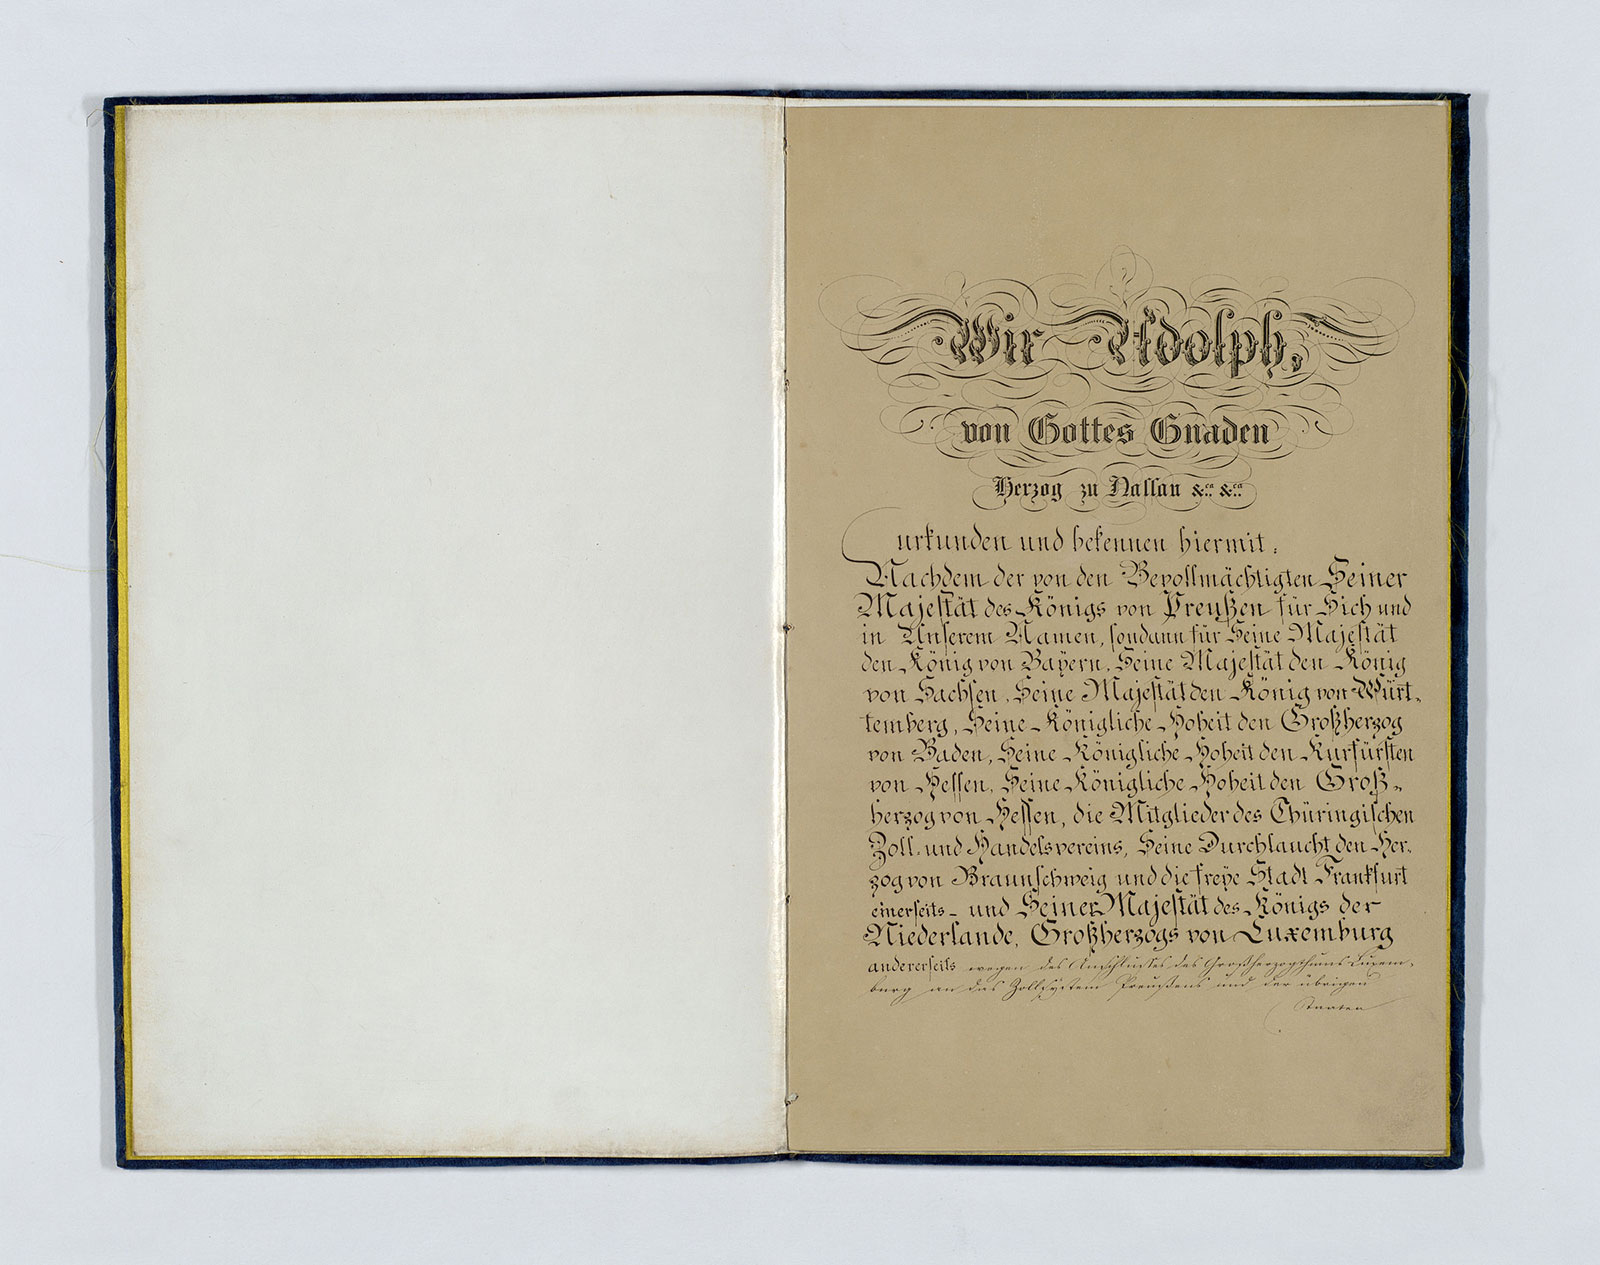 Wir Adolph,
von Gottes Gnaden
Herzog zu Nassau &ca &ca
urkunden und bekennen hiermit:
Nachdem der von den Bevollmächtigten Seiner
Majestät des Königs von Preußen für Sich und
in Unserem Namen, sondann für Seine Majestät
den König von Bayern, Seine Majestät den König
von Sachsen, Seine Majestät den König von Würt-
temberg, Seine Königliche Hoheit den Großherzog
von Baden, Seine Königliche Hoheit den Kurfürsten
von Hessen, Seine Königliche Hoheit den Groß-
herzog von Hessen, die Mitglieder des Thüringischen
Zoll- und Handelsvereins, Seine Durchlaucht den Her-
zog von Braunschweig und die freye Stadt Frankfurt
einerseits - und Seiner Majestät des Königs der
Niederlande, Großherzogs von Luxemburg
andererseits wegen des Anschlusses des Großherzogthums Luxem-
burg an das Zollsystem Preußens und der übrigen
Staaten